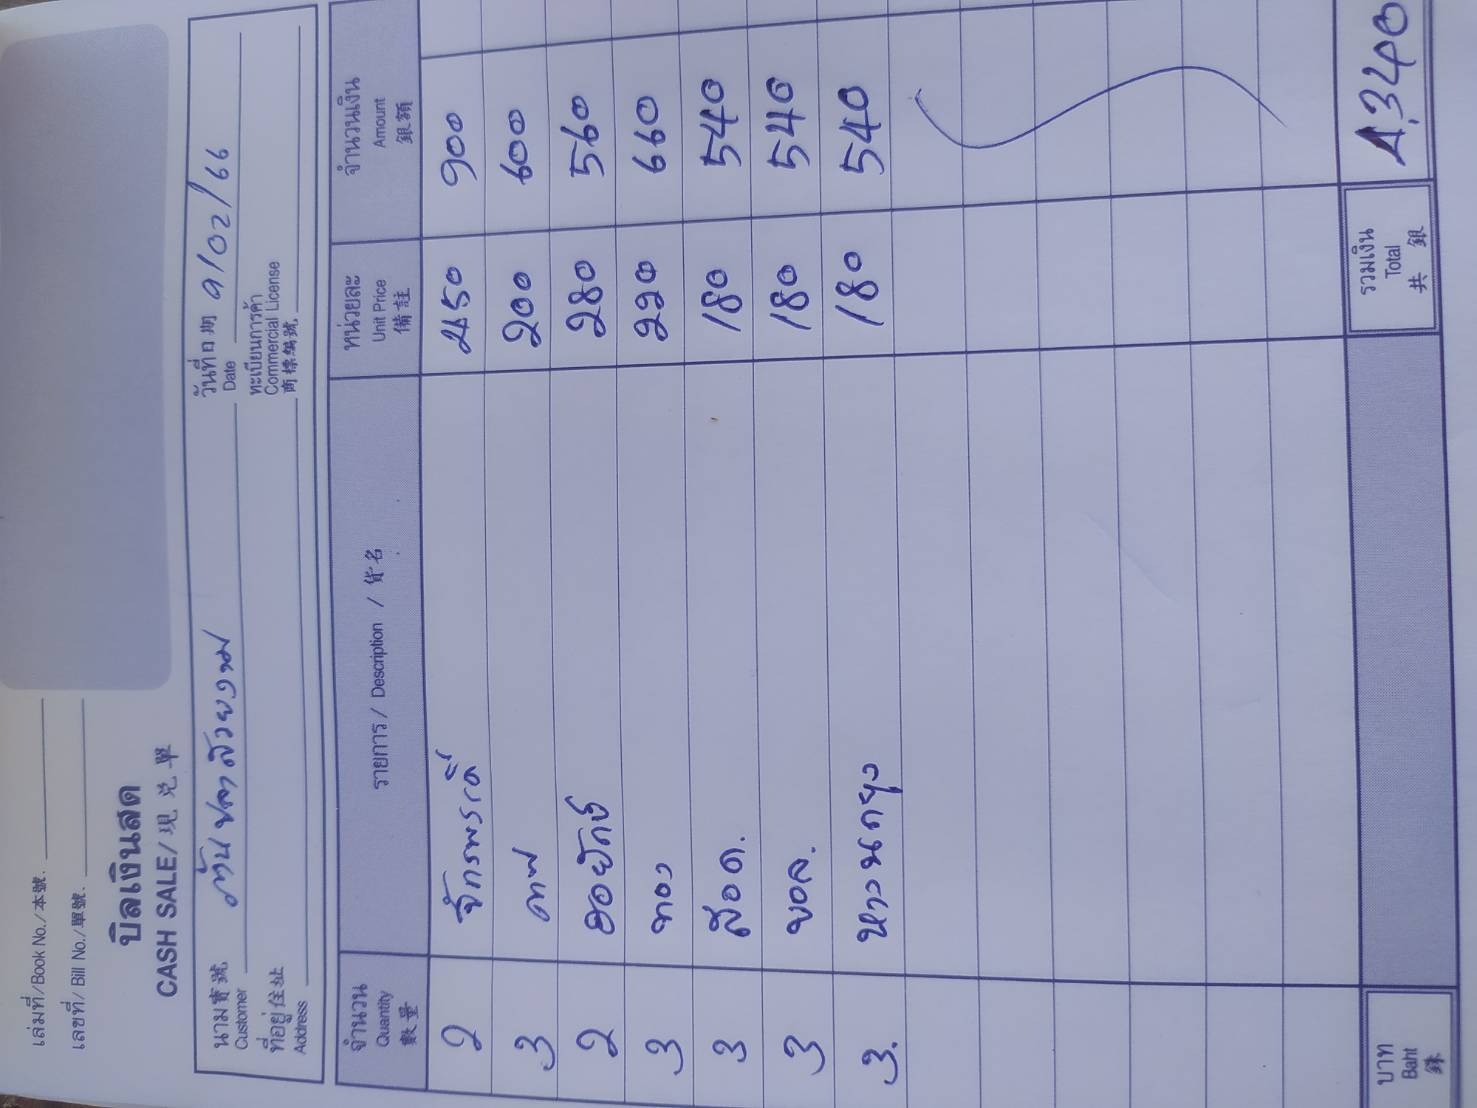 เล่มที่/Book No./本號.
เลขที่/ Bill No./單號.
บิลเงินสด
CASH SALE/現 兑 單
นาม賓號 Customer วันที่日期 Date 9/02/66
ที่อยู่住址 Address ทะเบียนการค้า Commercial License 商標編號
จำนวน Quantity 數量 รายการ / Description / 貨名 หน่วยละ Unit Price 備註 จำนวนเงิน Amount 銀額
2 จักรพรรดิ์ 450 900
3 ภาพ 200 600
2 280 560
3 ทอง 220 660
3 สอด. 180 540
3 บอล. 180 540
3. หางนกยูง 180 540
บาท Baht 銖 รวมเงิน Total 共 銀 4,340